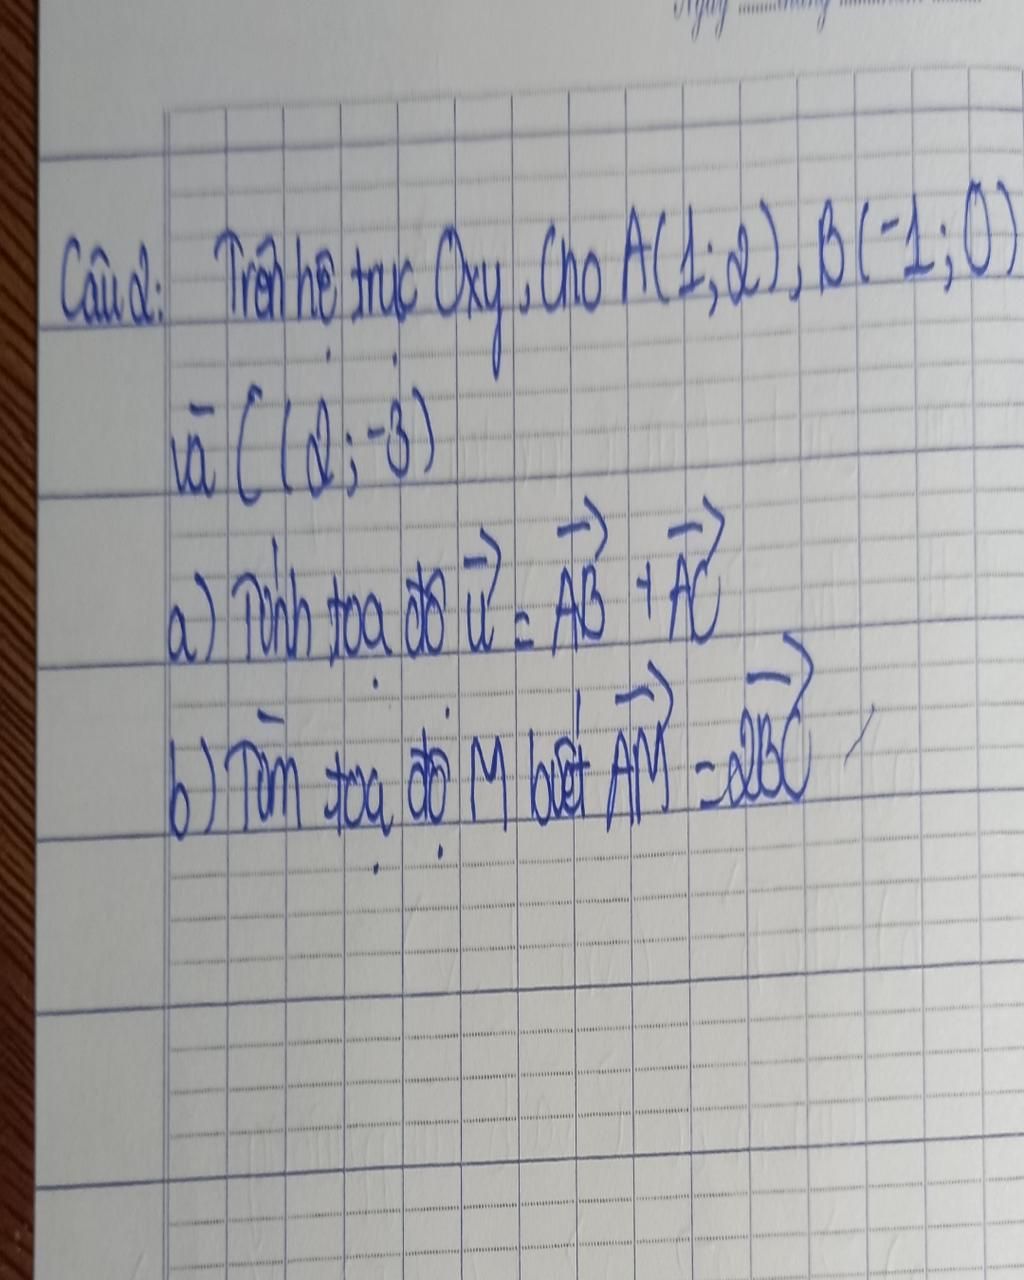 Ngày ........tháng ........
Câu 2: Trên hệ trục Oxy, cho A(1;2), B(-1;0)
và C(2;-3)
a) Tính tọa độ \vec{u} = \vec{AB} + \vec{AC}
b) Tìm tọa độ M biết \vec{AM} = 2\vec{BC}